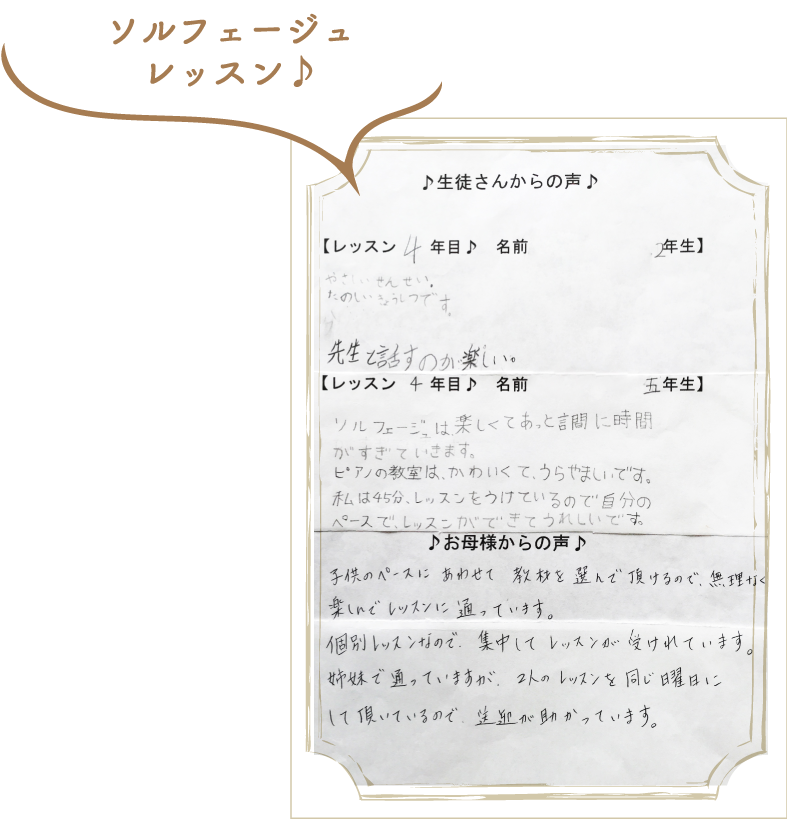 ソルフェージュ
レッスン♪
♪生徒さんからの声♪
【レッスン 4 年目♪ 名前 2年生】
やさしいせんせい。
たのしいきょうしつです。
先生と話すのが楽しい。
【レッスン 4 年目♪ 名前 五年生】
ソルフェージュは、楽しくてあっと言間に時間
がすぎていきます。
ピアノの教室は、かわいくて、うらやましいです。
私は45分、レッスンをうけているので自分の
ペースで、レッスンができてうれしいです。
♪お母様からの声♪
子供のペースに あわせて 教材を 選んで 頂けるので、無理なく
楽しんで レッスンに 通っています。
個別レッスンなので、集中して レッスンが 受けれています。
姉妹で通っていますが、2人の レッスンを 同じ曜日に
して頂いているので、が助かっています。